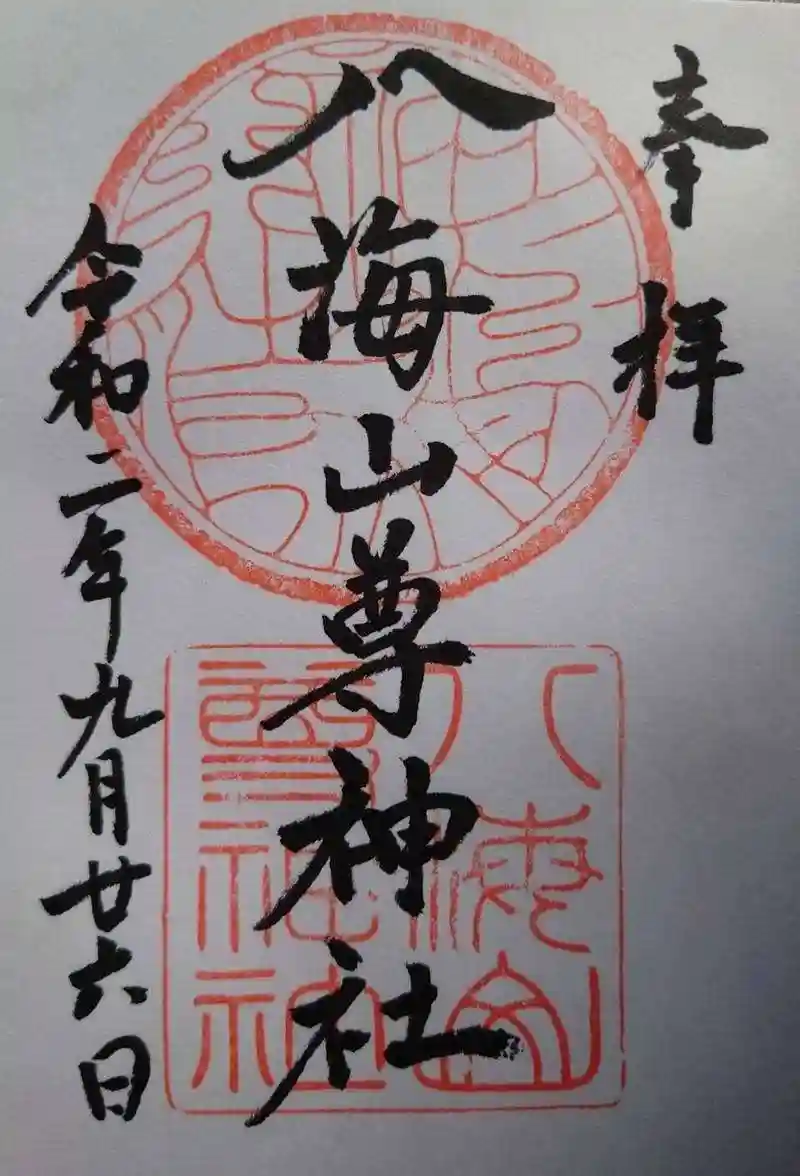 奉拝
八海山尊神社
令和二年九月廿六日
八海山
尊神社